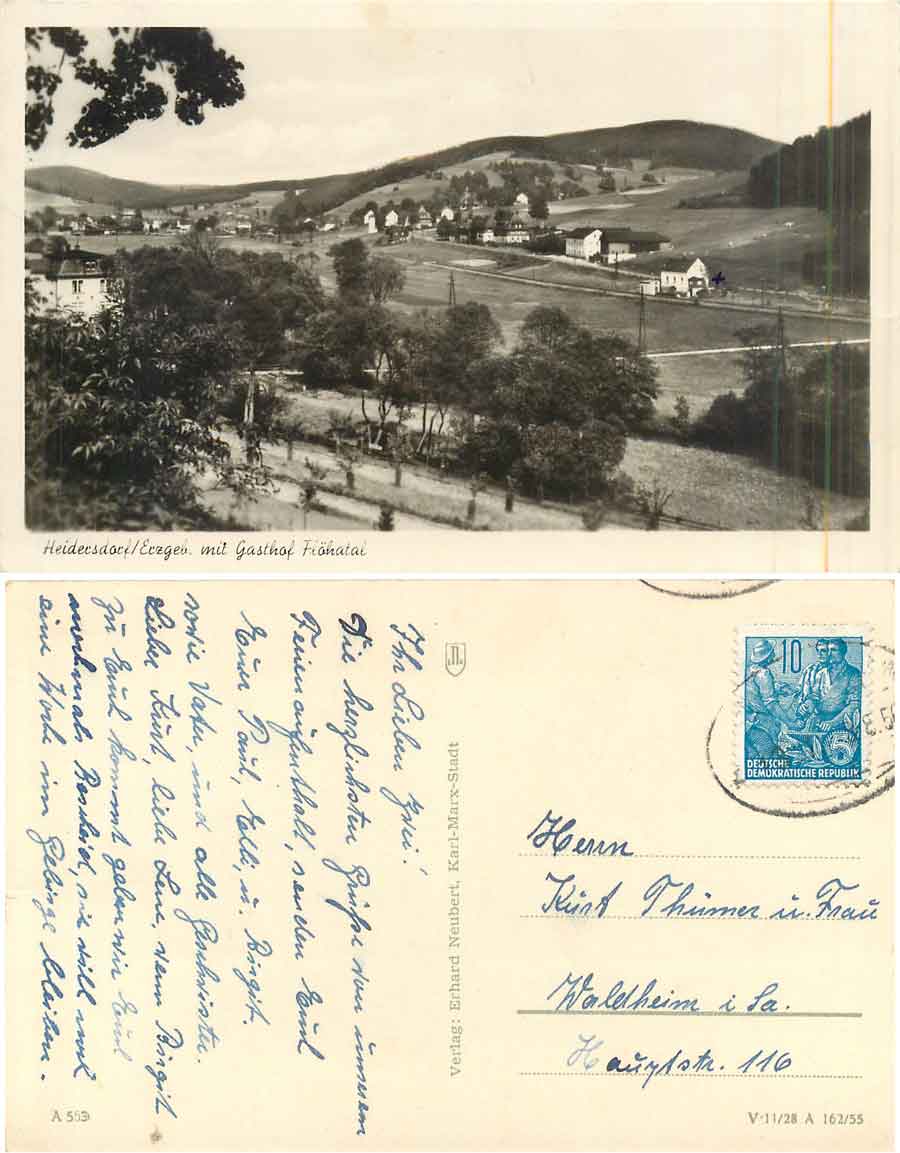 Heidersdorf/Erzgeb. mit Gasthof Flöhatal
Ihr Lieben Zwei!
Die herzlichsten Grüße von unserem
Ferienaufenthalt, senden Euch
Euer Paul, Elli, u. Birgit.
sowie Vater, und alle Geschwister.
Lieber Kurt, liebe Lene, wenn Birgit
zu Euch kommt geben wir Euch
nochmals Bescheid, sie will noch
eine Woche im Gebirge bleiben.
Verlag: Erhard Neubert, Karl-Marx-Stadt
10
5
DEUTSCHE
DEMOKRATISCHE REPUBLIK
Herrn
Kurt Thümer u. Frau
Waldheim i Sa.
Hauptstr. 116
A 553
V 11/28 A 162/55